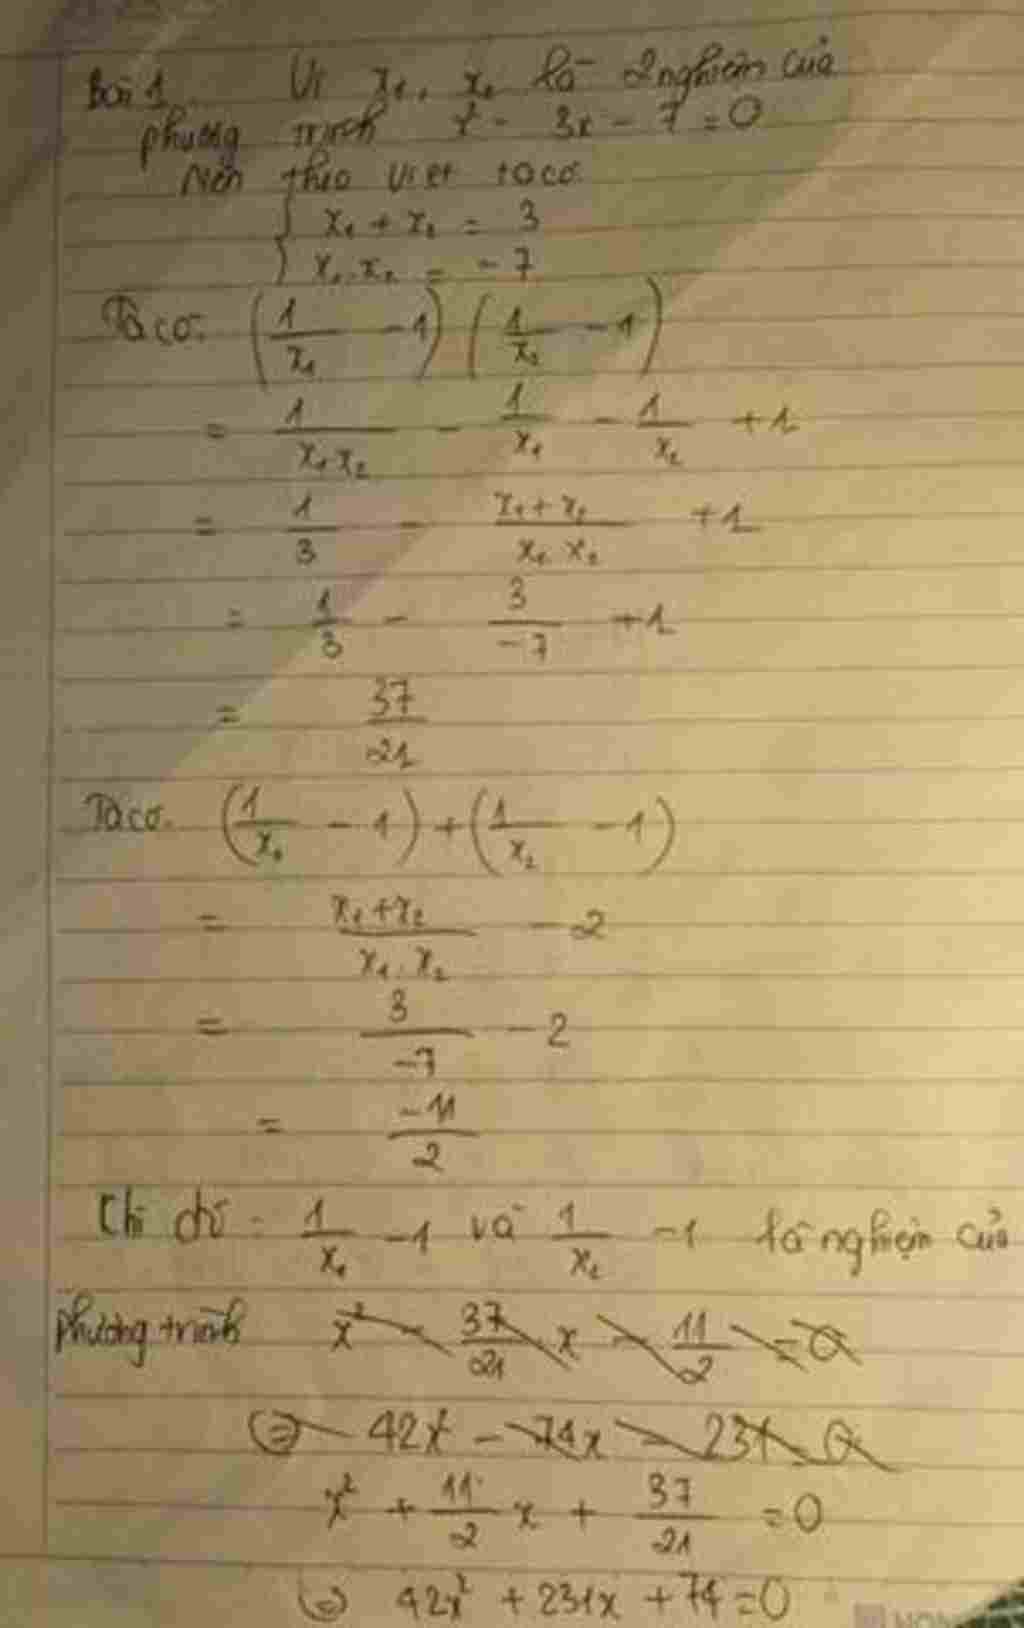 Bài 1. Vì x₁, x₂ là 2 nghiệm của
phương trình x² - 3x - 7 = 0
Nên theo Viet ta có
{ x₁ + x₂ = 3
x₁.x₂ = -7
Ta có: (1/x₁ - 1) (1/x₂ - 1)
= 1/(x₁x₂) - 1/x₁ - 1/x₂ + 1
= 1/3 - (x₁ + x₂)/(x₁ x₂) + 1
= 1/3 - 3/(-7) + 1
= 37/21
Ta có. (1/x₁ - 1) + (1/x₂ - 1)
= (x₁ + x₂)/(x₁.x₂) - 2
= 3/(-7) - 2
= -11/2
1/x₁ - 1 và 1/x₂ - 1 là nghiệm của
phương trình x² - 37/21 x - 11/2 = 0
⇔ 42x² - 74x - 231 = 0
x² + 11/2 x + 37/21 = 0
⇔ 42x² + 231x + 74 = 0